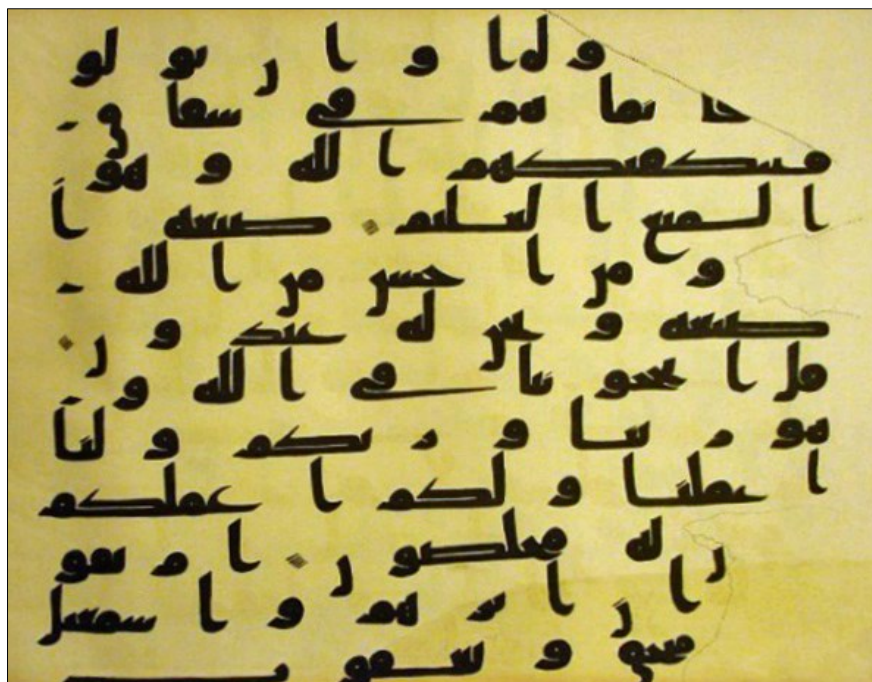 وان تولو
ا فانما هم في شقاق
فسيكفيكهم الله وهو
السميع العليم صبغه ا
ومن احسن من الله
صبغه ونحن له عبدون
قل اتحاجوننا في الله و
هو ربنا وربكم ولنا
اعملنا ولكم اعملكم
له مخلصون ام تقو
ن ان ابرهم واسمعيل
سحق ويعقوب